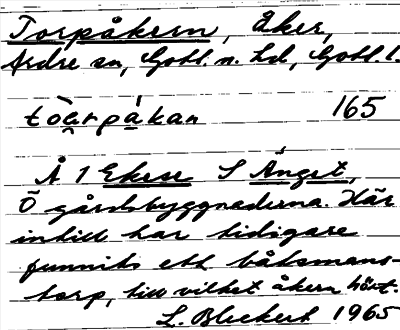 Torpåkern, Åker,
Ardre sn, Gotl. n. hd, Gotl. l.
165
Å 1 Ekese S Änget,
Ö gårdsbyggnaderna. Här
intill har tidigare
funnits ett båtsmans-
torp, till vilket åkern hört.
L. Bleckert 1965